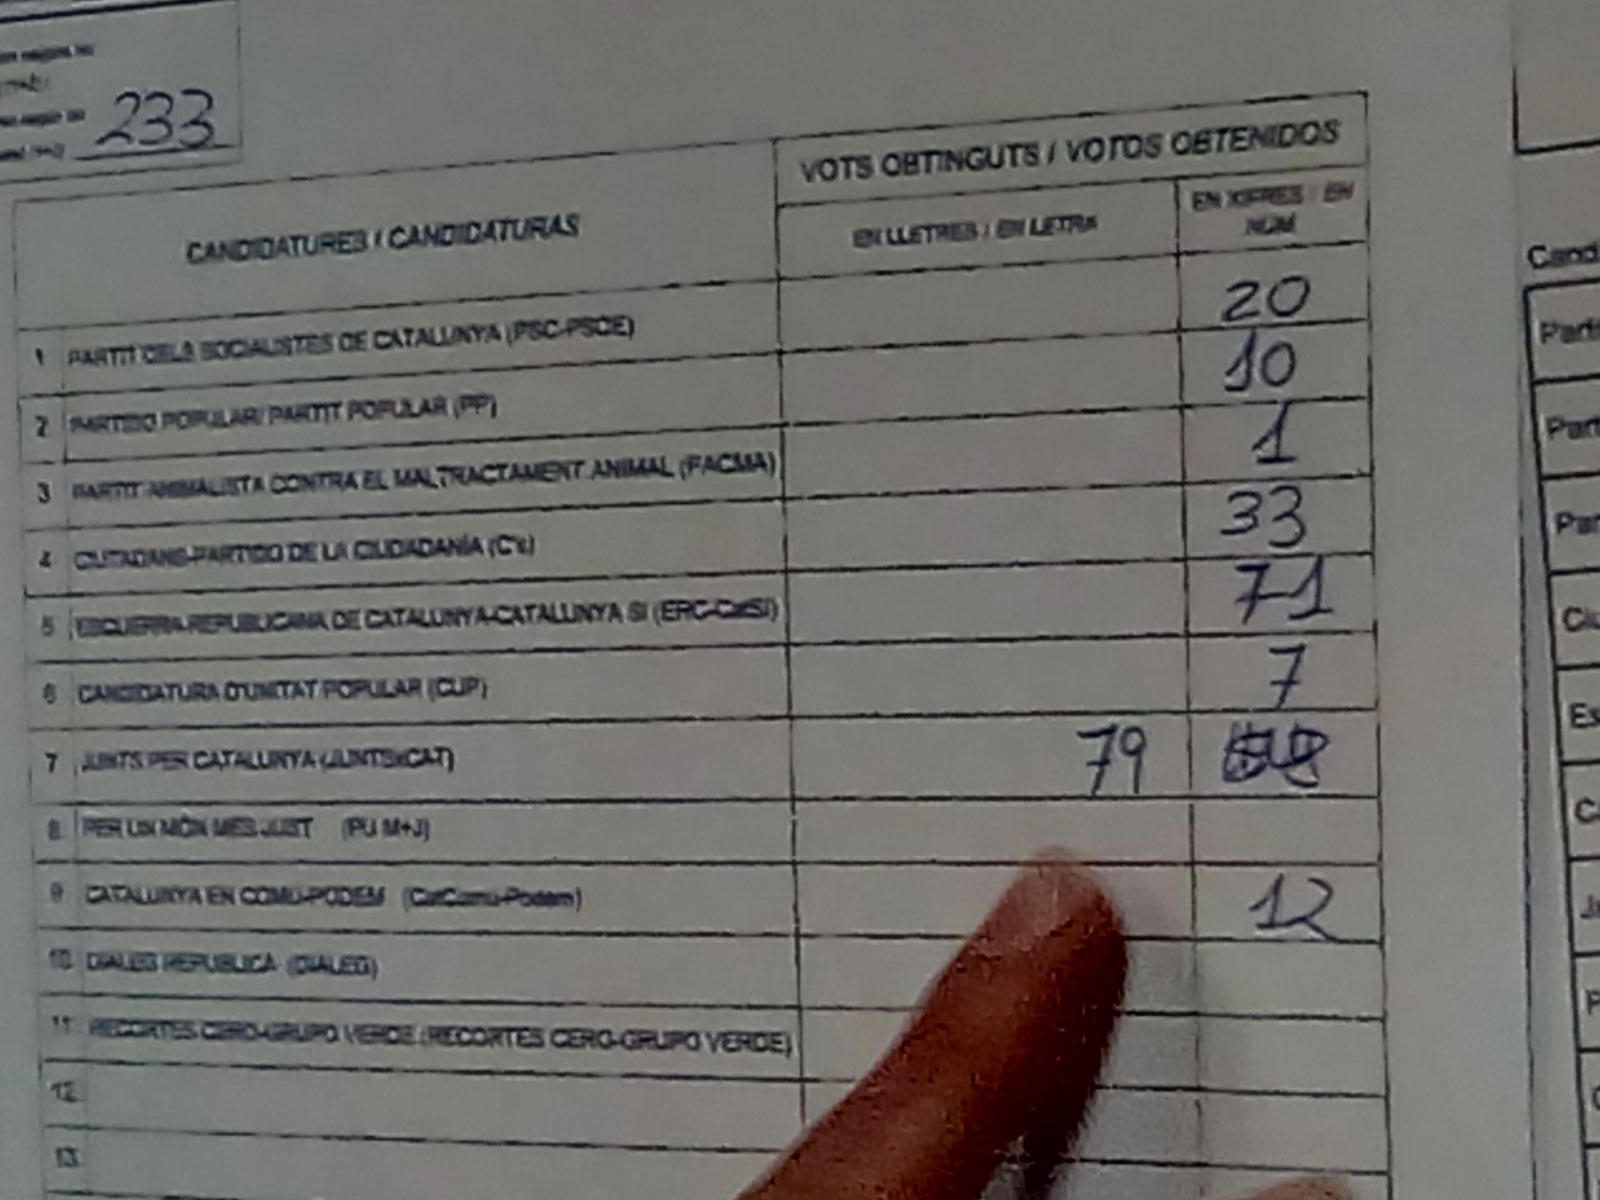 233
VOTS OBTINGUTS / VOTOS OBTENIDOS
CANDIDATURES / CANDIDATURAS
EN LLETRES / EN LETRA
EN XIFRES / EN
NUM
1 PARTIT DELS SOCIALISTES DE CATALUNYA (PSC-PSOE) 20
2 PARTIDO POPULAR/ PARTIT POPULAR (PP) 10
3 PARTIT ANIMALISTA CONTRA EL MALTRACTAMENT ANIMAL (PACMA) 1
4 CIUTADANS-PARTIDO DE LA CIUDADANÍA (C's) 33
5 ESQUERRA REPUBLICANA DE CATALUNYA-CATALUNYA SI (ERC-CatSí) 71
6 CANDIDATURA D'UNITAT POPULAR (CUP) 7
7 JUNTS PER CATALUNYA (JUNTSxCAT) 79
8 PER UN MÓN MES JUST (PU M+J)
9 CATALUNYA EN COMÚ-PODEM (CatComú-Podem) 12
10 DIÀLEG REPUBLICÀ (DIÀLEG)
11 RECORTES CERO-GRUPO VERDE (RECORTES CERO-GRUPO VERDE)
12
13
Cand
Parti
Part
Par
Ciu
Es
C